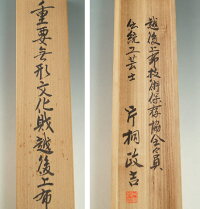 重要無形文化財越後上布
越後上布技術保存協会会員
伝統工芸士
片桐政吉